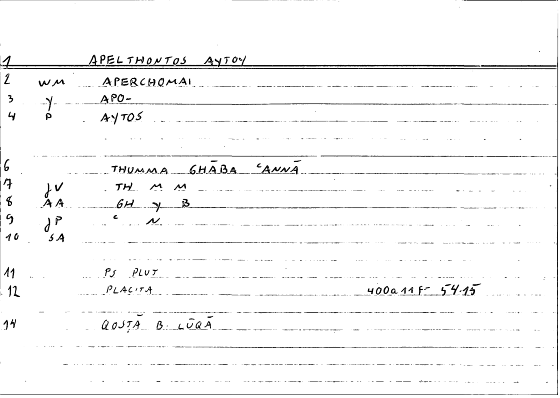 1 APELTHONTOS AYTOY
2 WM APERCHOMAI
3 y APO-
4 P AYTOS
6 THUMMA GHĀBA ʿANNĀ
7 JV TH M M
8 AA GH y B
9 JP ʿ N
10 SA
11 PS PLUT
12 PLACITA 400a11F- 54.15
14 QOSṬĀ B. LŪQĀ